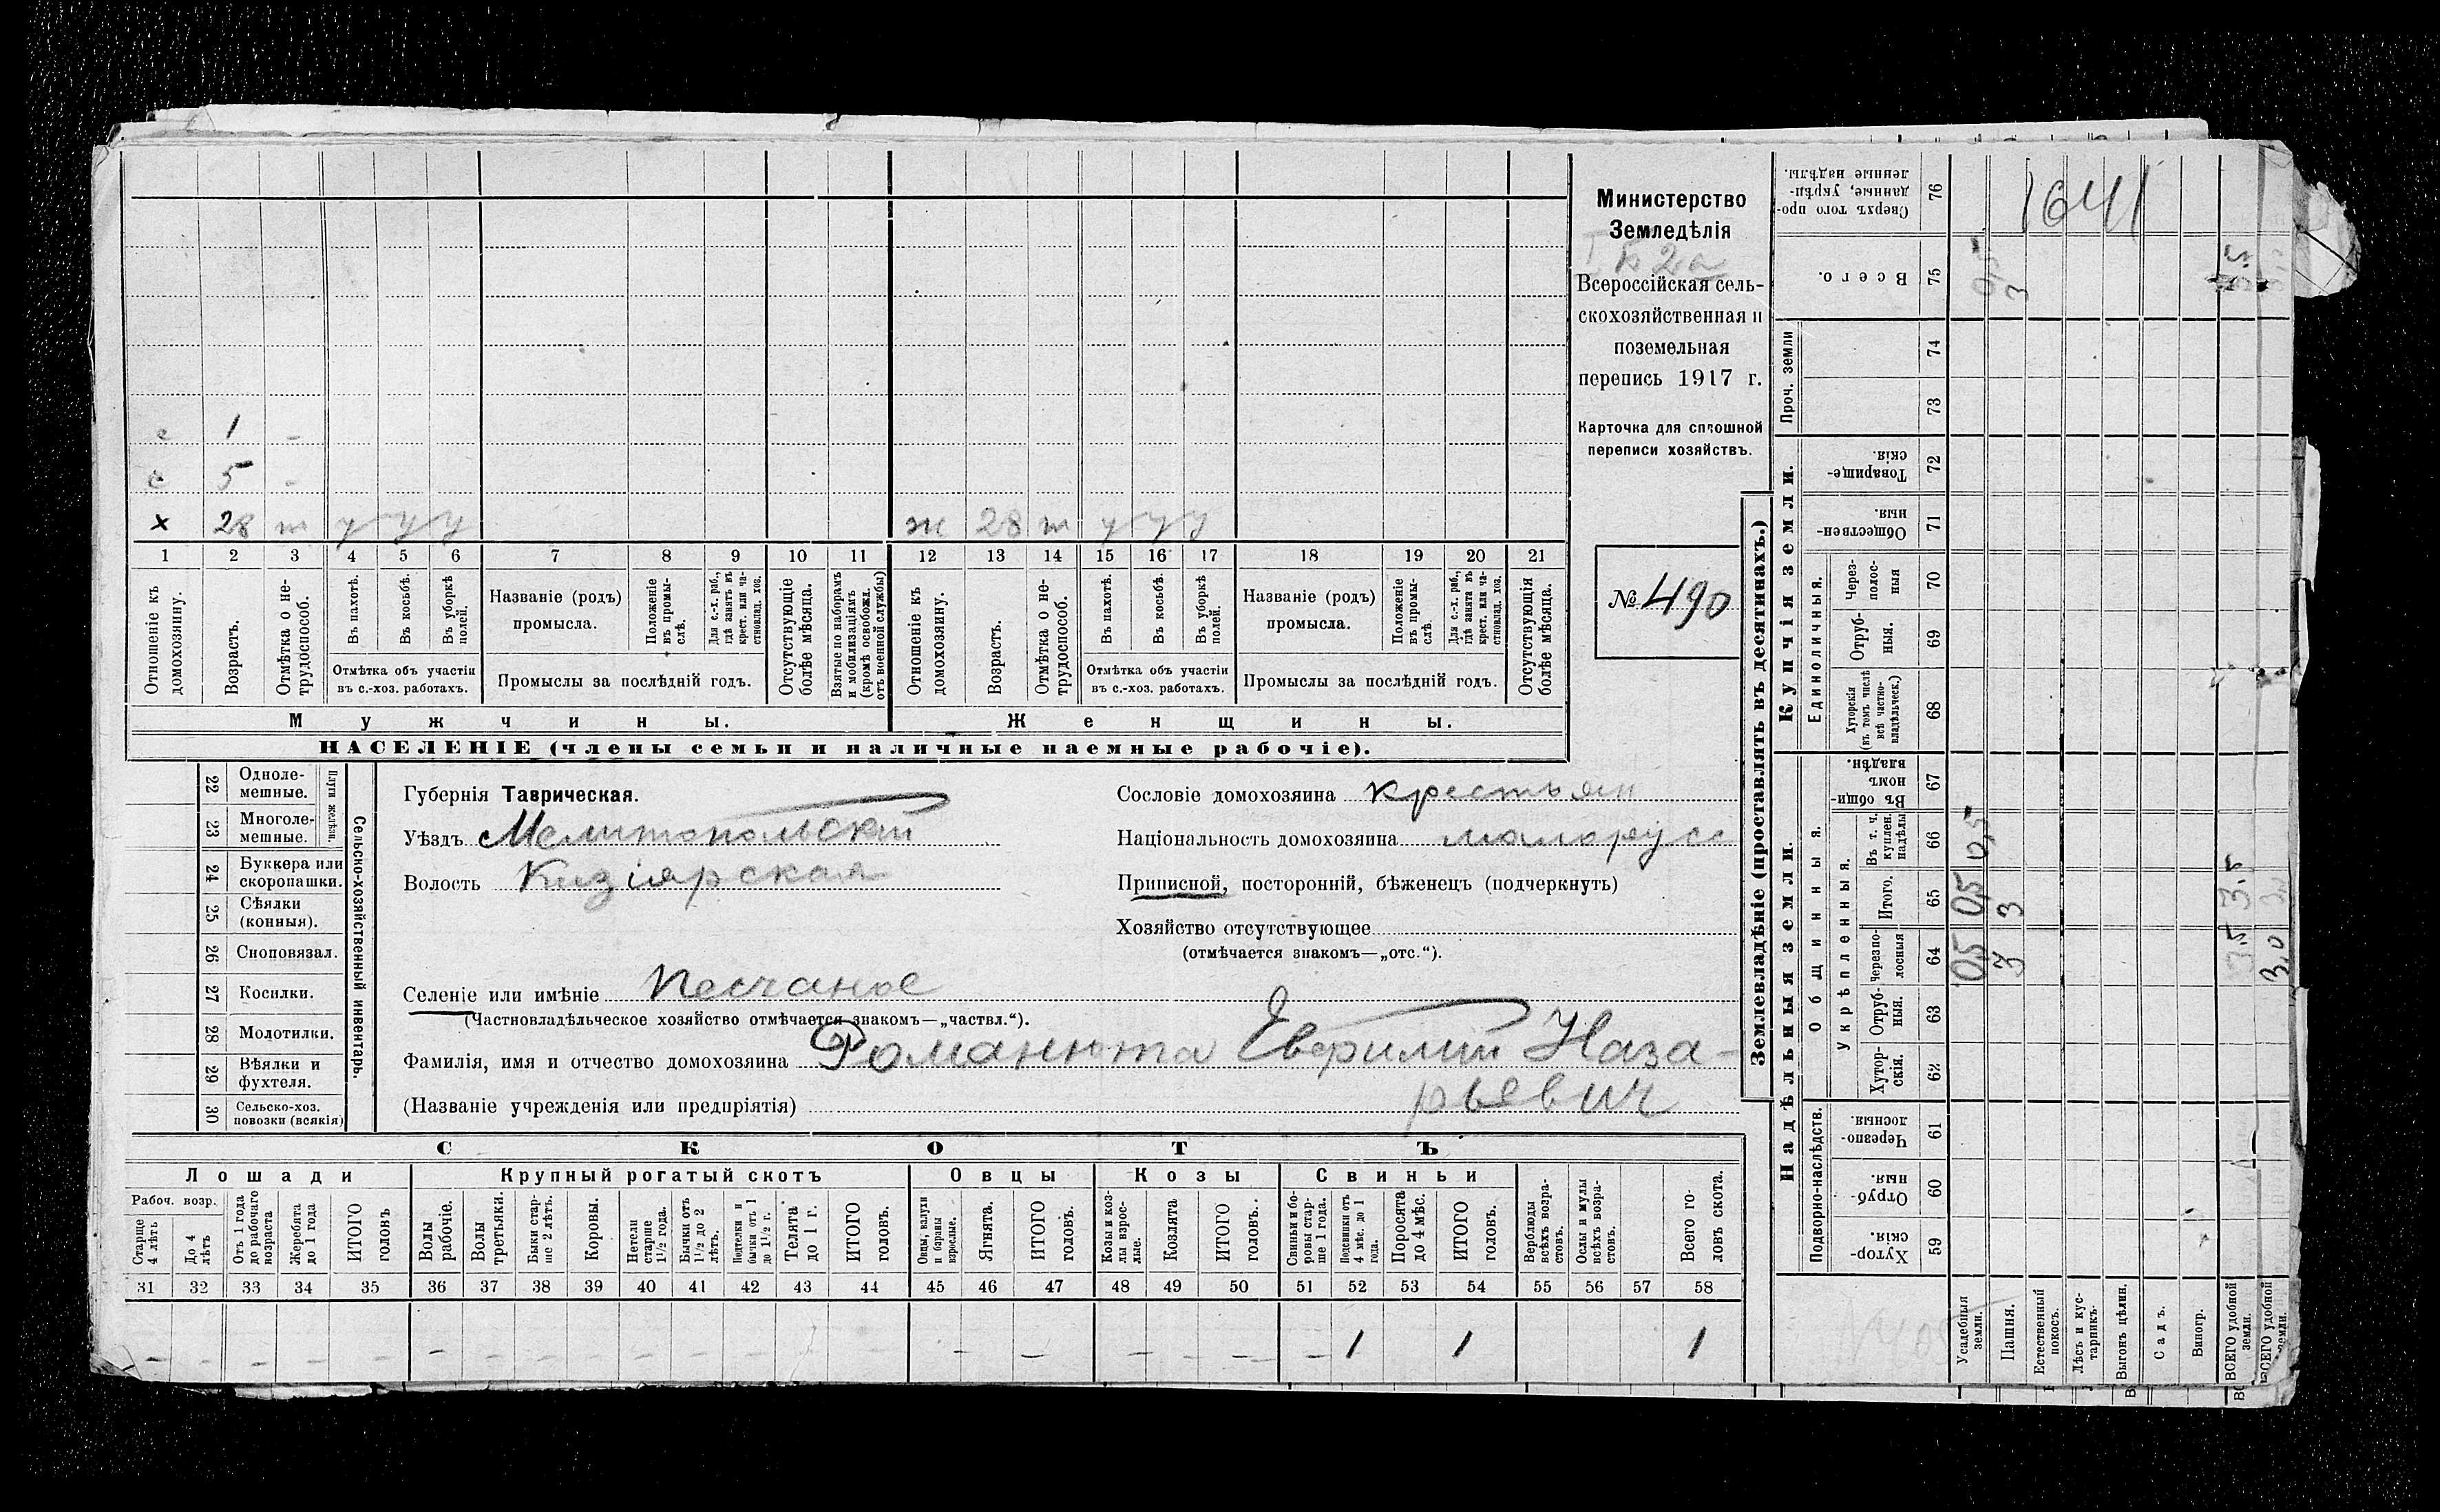 Министерство
Земледѣлія
Всероссійская сель-
скохозяйственная и
поземельная
перепись 1917 г.
Карточка для сплошной
переписи хозяйствъ.
№ 490
с 1 -
с 5 -
х 28 т у у у ж 28 т у у у
1 2 3 4 5 6 7 8 9 10 11 12 13 14 15 16 17 18 19 20 21
Отношеніе къ домохозяину.
Возрастъ.
Отмѣтка о не-трудоспособ.
Въ пахотѣ.
Въ косьбѣ.
Въ уборкѣ полей.
Отмѣтка объ участіи
въ с.-хоз. работахъ.
Названіе (родъ)
промысла.
Положеніе въ промы-слѣ.
Для с.-х. раб., гдѣ занятъ въ крест. или ча-стновлад. хоз.
Промыслы за послѣдній годъ.
Отсутствующіе болѣе мѣсяца.
Взятые по наборамъ и мобилизаціямъ (кромѣ освобожд. отъ военной службы)
Отношеніе къ домохозяину.
Возрастъ.
Отмѣтка о не-трудоспособ.
Въ пахотѣ.
Въ косьбѣ.
Въ уборкѣ полей.
Отмѣтка объ участіи
въ с.-хоз. работахъ.
Названіе (родъ)
промысла.
Положеніе въ промы-слѣ.
Для с.-х. раб., гдѣ занята въ крест. или ча-стновлад. хоз.
Промыслы за послѣдній годъ.
Отсутствующія болѣе мѣсяца.
Мужчины. Женщины.
НАСЕЛЕНІЕ (члены семьи и наличные наемные рабочіе).
22 Одноле-мешные.
23 Многоле-мешные.
Плуги желѣзн.
24 Буккера или скоропашки.
25 Сѣялки (конныя).
26 Сноповязал.
27 Косилки.
28 Молотилки.
29 Вѣялки и фухтеля.
30 Сельско-хоз. повозки (всякія)
Сельско-хозяйственный инвентарь.
Губернія Таврическая.
Уѣздъ Мелитопольскій
Волость Кизіярская
Селеніе или имѣніе Песчаное
(Частновладѣльческое хозяйство отмѣчается знакомъ—„частвл.“).
Фамилія, имя и отчество домохозяина Романюта Евфимій Наза-
рьевич
(Названіе учрежденія или предпріятія)
Сословіе домохозяина крестьян
Національность домохозяина малорусс
Приписной, посторонній, бѣженецъ (подчеркнуть)
Хозяйство отсутствующее
(отмѣчается знакомъ—„отс.“).
СКОТЪ
Лошади Крупный рогатый скотъ Овцы Козы Свиньи
Рабоч. возр.
Старше 4 лѣтъ
До 4 лѣтъ
Отъ 1 года до рабочаго возраста
Жеребята до 1 года
ИТОГО головъ
Волы рабочіе.
Волы третьяки.
Быки стар-ше 2 лѣтъ.
Коровы.
Нетели старше 1½ года.
Бычки отъ 1½ до 2 лѣтъ.
Подтелки и бычки отъ 1 до 1½ г.
Телята до 1 г.
ИТОГО головъ.
Овцы, валухи и бараны взрослые.
Ягнята.
ИТОГО головъ.
Козы и коз-лы взрос-лые.
Козлята
ИТОГО головъ.
Свиньи и бо-ровы стар-ше 1 года.
Подсвинки отъ 4 мѣс. до 1 года.
Поросята до 4 мѣс.
ИТОГО головъ.
Верблюды всѣхъ возра-стовъ.
Ослы и мулы всѣхъ возра-стовъ.
Всего го-ловъ скота.
31 32 33 34 35 36 37 38 39 40 41 42 43 44 45 46 47 48 49 50 51 52 53 54 55 56 57 58
- - - - - - - - - - - - - - - - - - - 1 1 1
Землевладѣніе (проставлять въ десятинахъ.)
Купчія земли.
Надѣльныя земли.
Сверхъ того про-данные, укрѣп-ленные надѣлы. 76 1641
Всего. 75 0,5 3 3,5
Проч. земли 74
73
Товарище-скія. 72
Обществен-ныя. 71
Единоличныя.
Через-полос-ныя 70
Отруб-ныя. 69
Хуторскія (въ томъ числѣ всѣ частно-владѣльческ.) 68
Общинныя.
Въ общи-номъ владѣн. 67
Укрѣпленныя.
Въ т. ч. куплен. надѣлы 66 0,5
Итого. 65 0,5 3 3,5
Черезпо-лосныя 64 0,5 3 3,5 3,0
Отруб-ныя. 63
Хутор-скія. 62
Подворно-наслѣдств.
Черезпо-лосныя. 61
Отруб-ныя. 60
Хутор-скія 59
Усадебныя земли.
Пашня.
Естественный покосъ.
Лѣсъ и кус-тарникъ.
Выгонъ цѣлин.
Садъ.
Виногр.
ВСЕГО удобной земли.
ВСЕГО удобной земли.